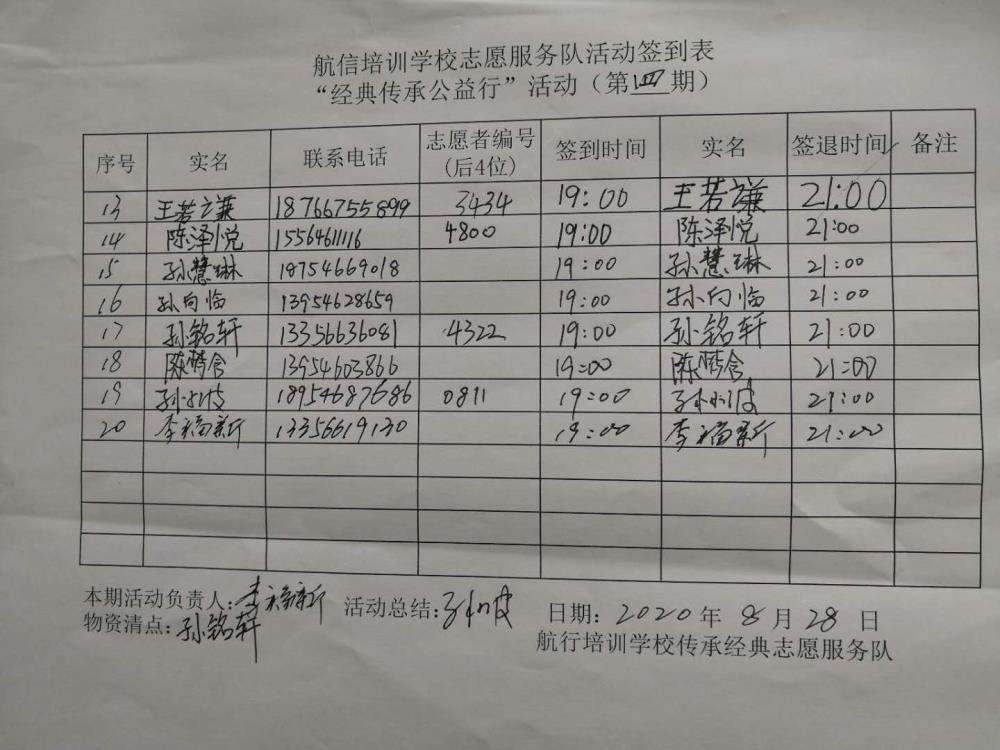 航信培训学校志愿服务队活动签到表
“经典传承公益行”活动（第四期）
序号 实名 联系电话 志愿者编号(后4位) 签到时间 实名 签退时间 备注
13 王若谦 18766755899 3434 19:00 王若谦 21:00
14 陈泽悦 15564611116 4800 19:00 陈泽悦 21:00
15 孙慧琳 18754669018 19:00 孙慧琳 21:00
16 孙向临 13954628659 19:00 孙向临 21:00
17 孙铭轩 13356636081 4322 19:00 孙铭轩 21:00
18 13954603866 19:00 21:00
19 18954687686 0811 19:00 21:00
20 李福新 13356619130 19:00 李福新 21:00
本期活动负责人：李福新 活动总结： 日期：2020年8月28日
物资清点：孙铭轩 航行培训学校传承经典志愿服务队